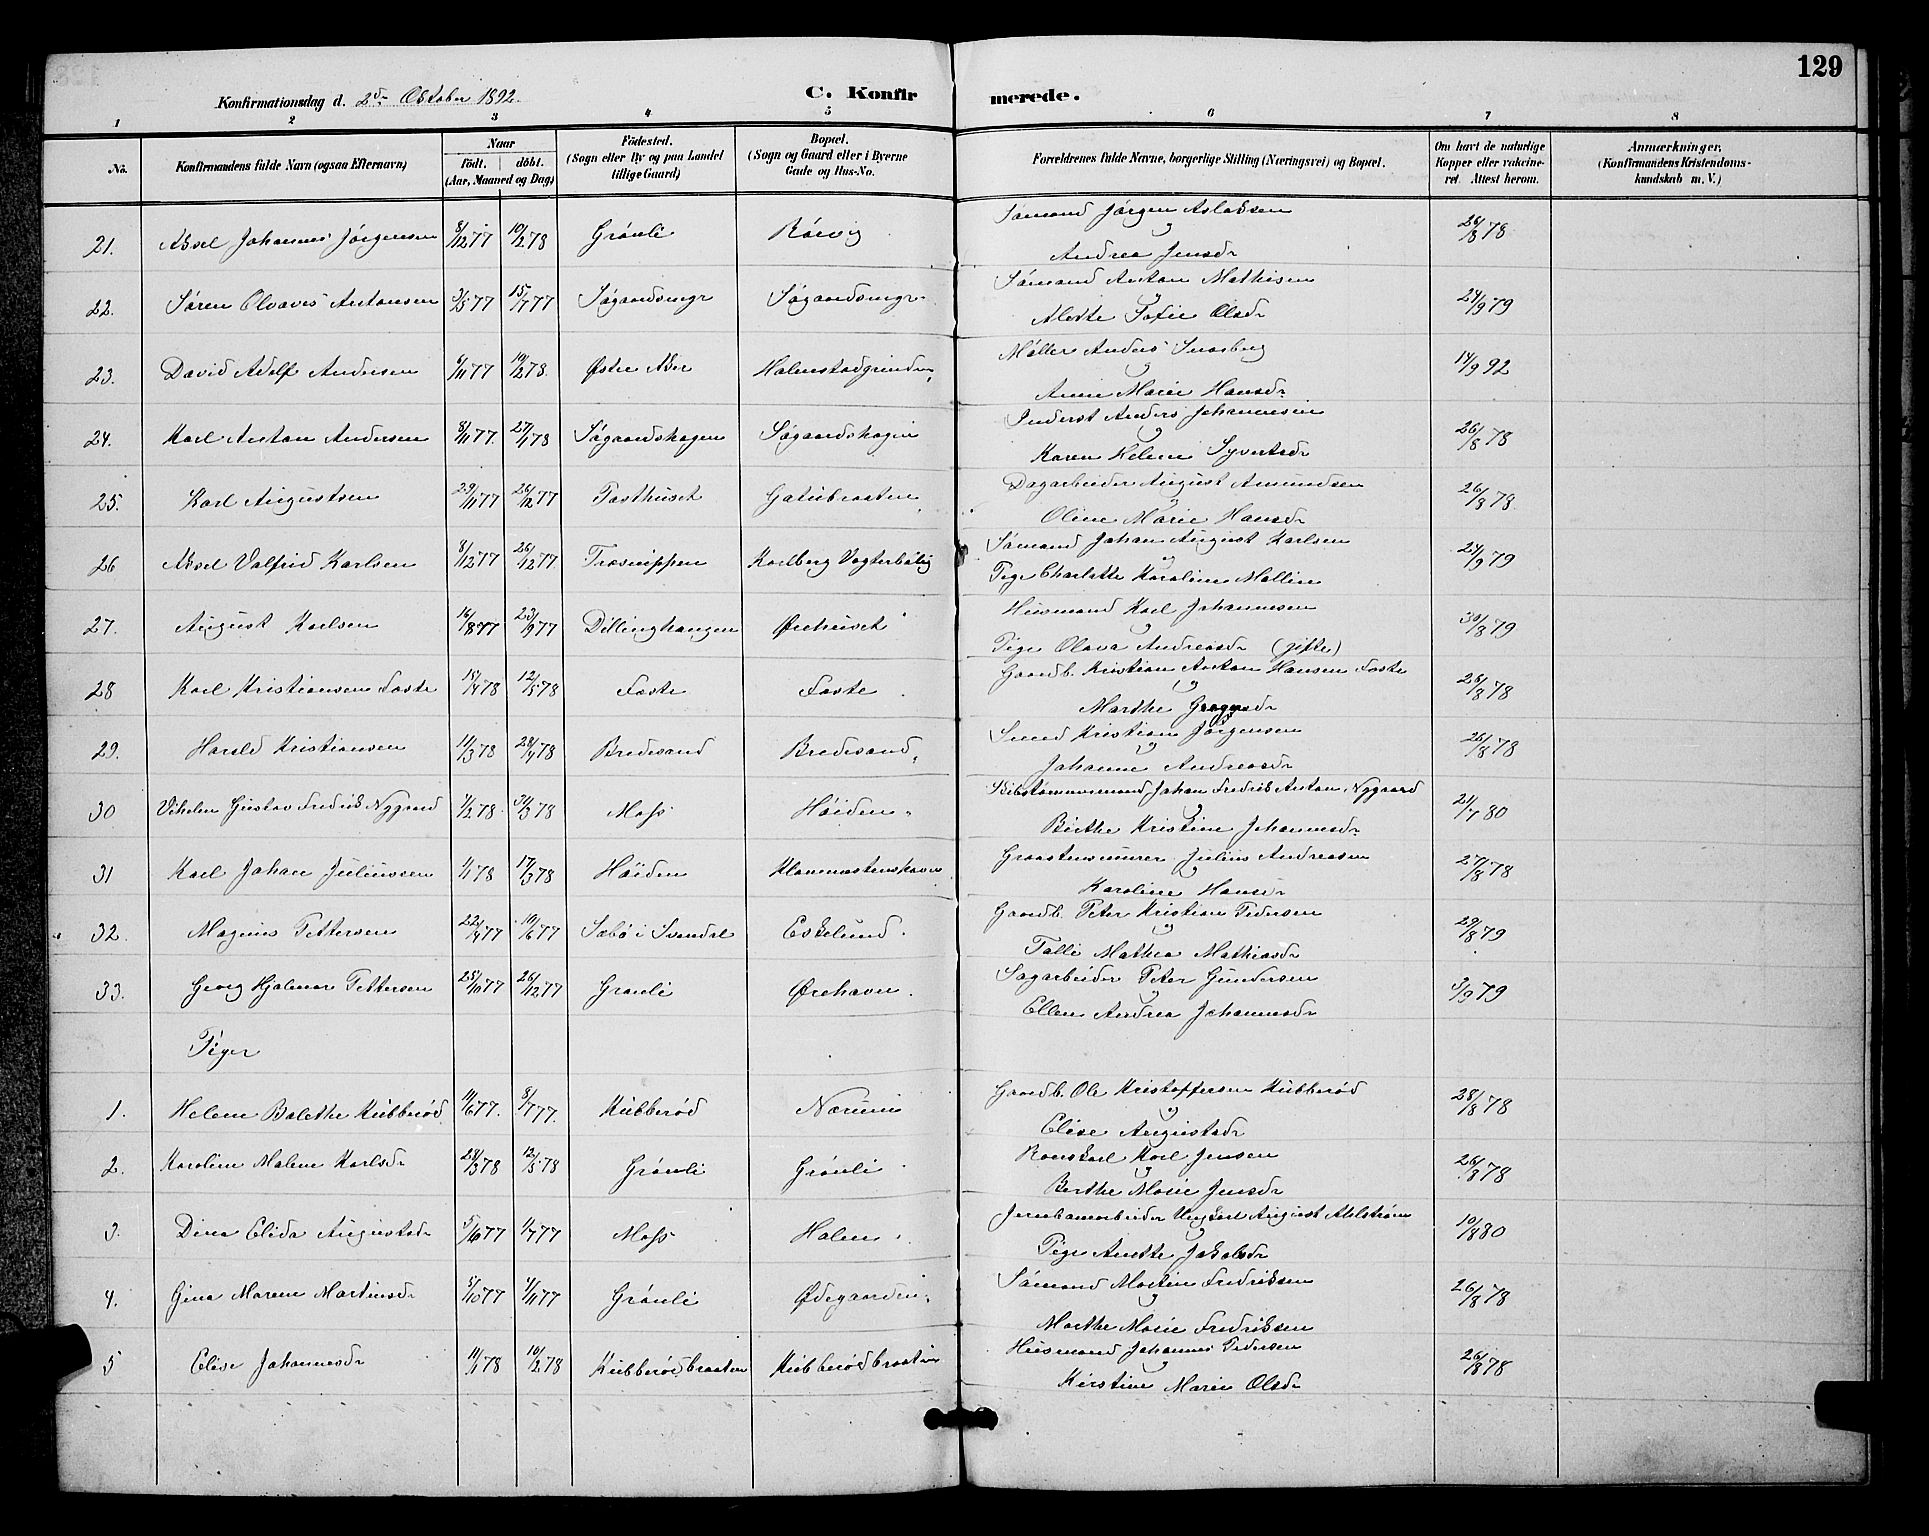 129
Konfirmationsdag d. 2den Oktober 1892. C. Konfirmerede.
1 2 3 4 5 6 7 8
No. Konfirmandens fulde Navn (ogsaa Efternavn) Naar Födt. döbt. (Aar, Maaned og Dag) Födested. (Sogn eller By og paa Landet tillige Gaard) Bopæl. (Sogn og Gaard eller i Byerne Gade og Hus-No. Forældrenes fulde Navne, borgerlige Stilling (Næringsvei) og Bopæl. Om havt de naturlige Kopper eller vakcineret. Attest herom. Anmærkninger. (Konfirmandens Kristendomskundskab m. V.)
21. Aksel Johannes Jørgensen 8/12 77 10/2 78 Grönli Rörvig Sømand Jørgen Aslaksen og Andrea Jensdr 26/8 78
22. Søren Olvaves Antonsen 3/5 77 15/7 77 Søgaardsengr Søgaardsengr. Sømand Anton Mathisen og Alette Sofie Olsdr 24/9 79
23. David Adolf Andersen 6/11 77 10/2 78. Østre Aker Halmstadgrinden, Møller Anders Snarberg og Anne Marie Hansdr 14/9 92
24. Karl Anton Andersen 8/11 77. 27/1 78 Søgaardshagen Søgaardshagen Inderst Anders Johannesen og Karen Helene Syvertsdr 26/8 78
25. Karl Augustsen 29/11 77 26/12 77 Tasthuset Gatubraaten, Dagarbeider August Amundsen og Oline Marie Hansdr 26/8 78
26 Aksel Valfrid Karlsen 8/12 77 26/12 77 Træsnippen Karlberg Vogterbolig Sømand Johan August Karlsen og Pige Charlotte Karoline Mallin 24/9 79
27. August Karlsen 16/8 77 23/9 77 Dillinghaugen Ørehuset Husmand Karl Johannesen og Pige Olava Andreasdr (gifte) 30/8 79
28 Karl Kristiansen Foste 15/4 78 12/5 78 Foste Foste. Gaardb. Kristian Anton Hansen Foste og Marthe Gregersdr 26/8 78
29. Harald Kristiansen 11/3 78 28/4 78 Bredesand Bredesand, Smed Kristian Jørgensen og Johanne Andreasdr 26/8 78
30 Vihelm Gustav Fredrik Nygaard 1/2 78. 31/3 78 Moss Höiden. Skibstømmermand Johan Fredrik Anton Nygaard og Birthe Kristine Johannesdr 21/7 80
31 Karl Johan Juliussen 1/1 78 17/3 78 Höiden Klommestenskoven Graastensmurer Julius Andreasen og Karoline Hansdr 27/8 78
32. Magnus Pettersen 22/4 77 10/6 77 Sæbö i Svendal Eskelund. Gaardb. Peter Kristian Pedersen og Talle Mathea Mathiasdr 29/8 79
33. Georg Hjalmar Pettersen 28/10 77 26/12 77 Grönli Ørehavn. Sagarbeider Peter Gundersen og Ellen Andrea Johannesdr 3/9 79
Piger
1. Helene Balethe Kubberød 11/6 77. 8/7 77. Kubberød Nærum Gaardb. Ole Kristoffersen Kubberød og Elise Augustadr 28/8 78
2. Karoline Malene Karlsdr 28/3 78 12/5 78 Grönli Grönli. Rorskarl Karl Jensen og Berthe Marie Jensdr 26/8 78
3. Dina Elida Augustsdr 5/6 77 1/7 77 Moss Halem. Jernbanearbeider Ungkarl August Ahlstrøm og Pige Anette Jakobsdr 10/8 80
4. Gina Maren Martinsdr 5/10 77 4/11 77 Grönli Ødegaarden. Sømand Martin Fredriksen og Marthe Marie Fredriksen 26/8 78
5 Elise Johannesdr 11/1 78 10/2 78 Kubberødbraaten Kubberødbraaten Husmand Johannes Pedersen og Kirstine Marie Olsdr 26/8 78